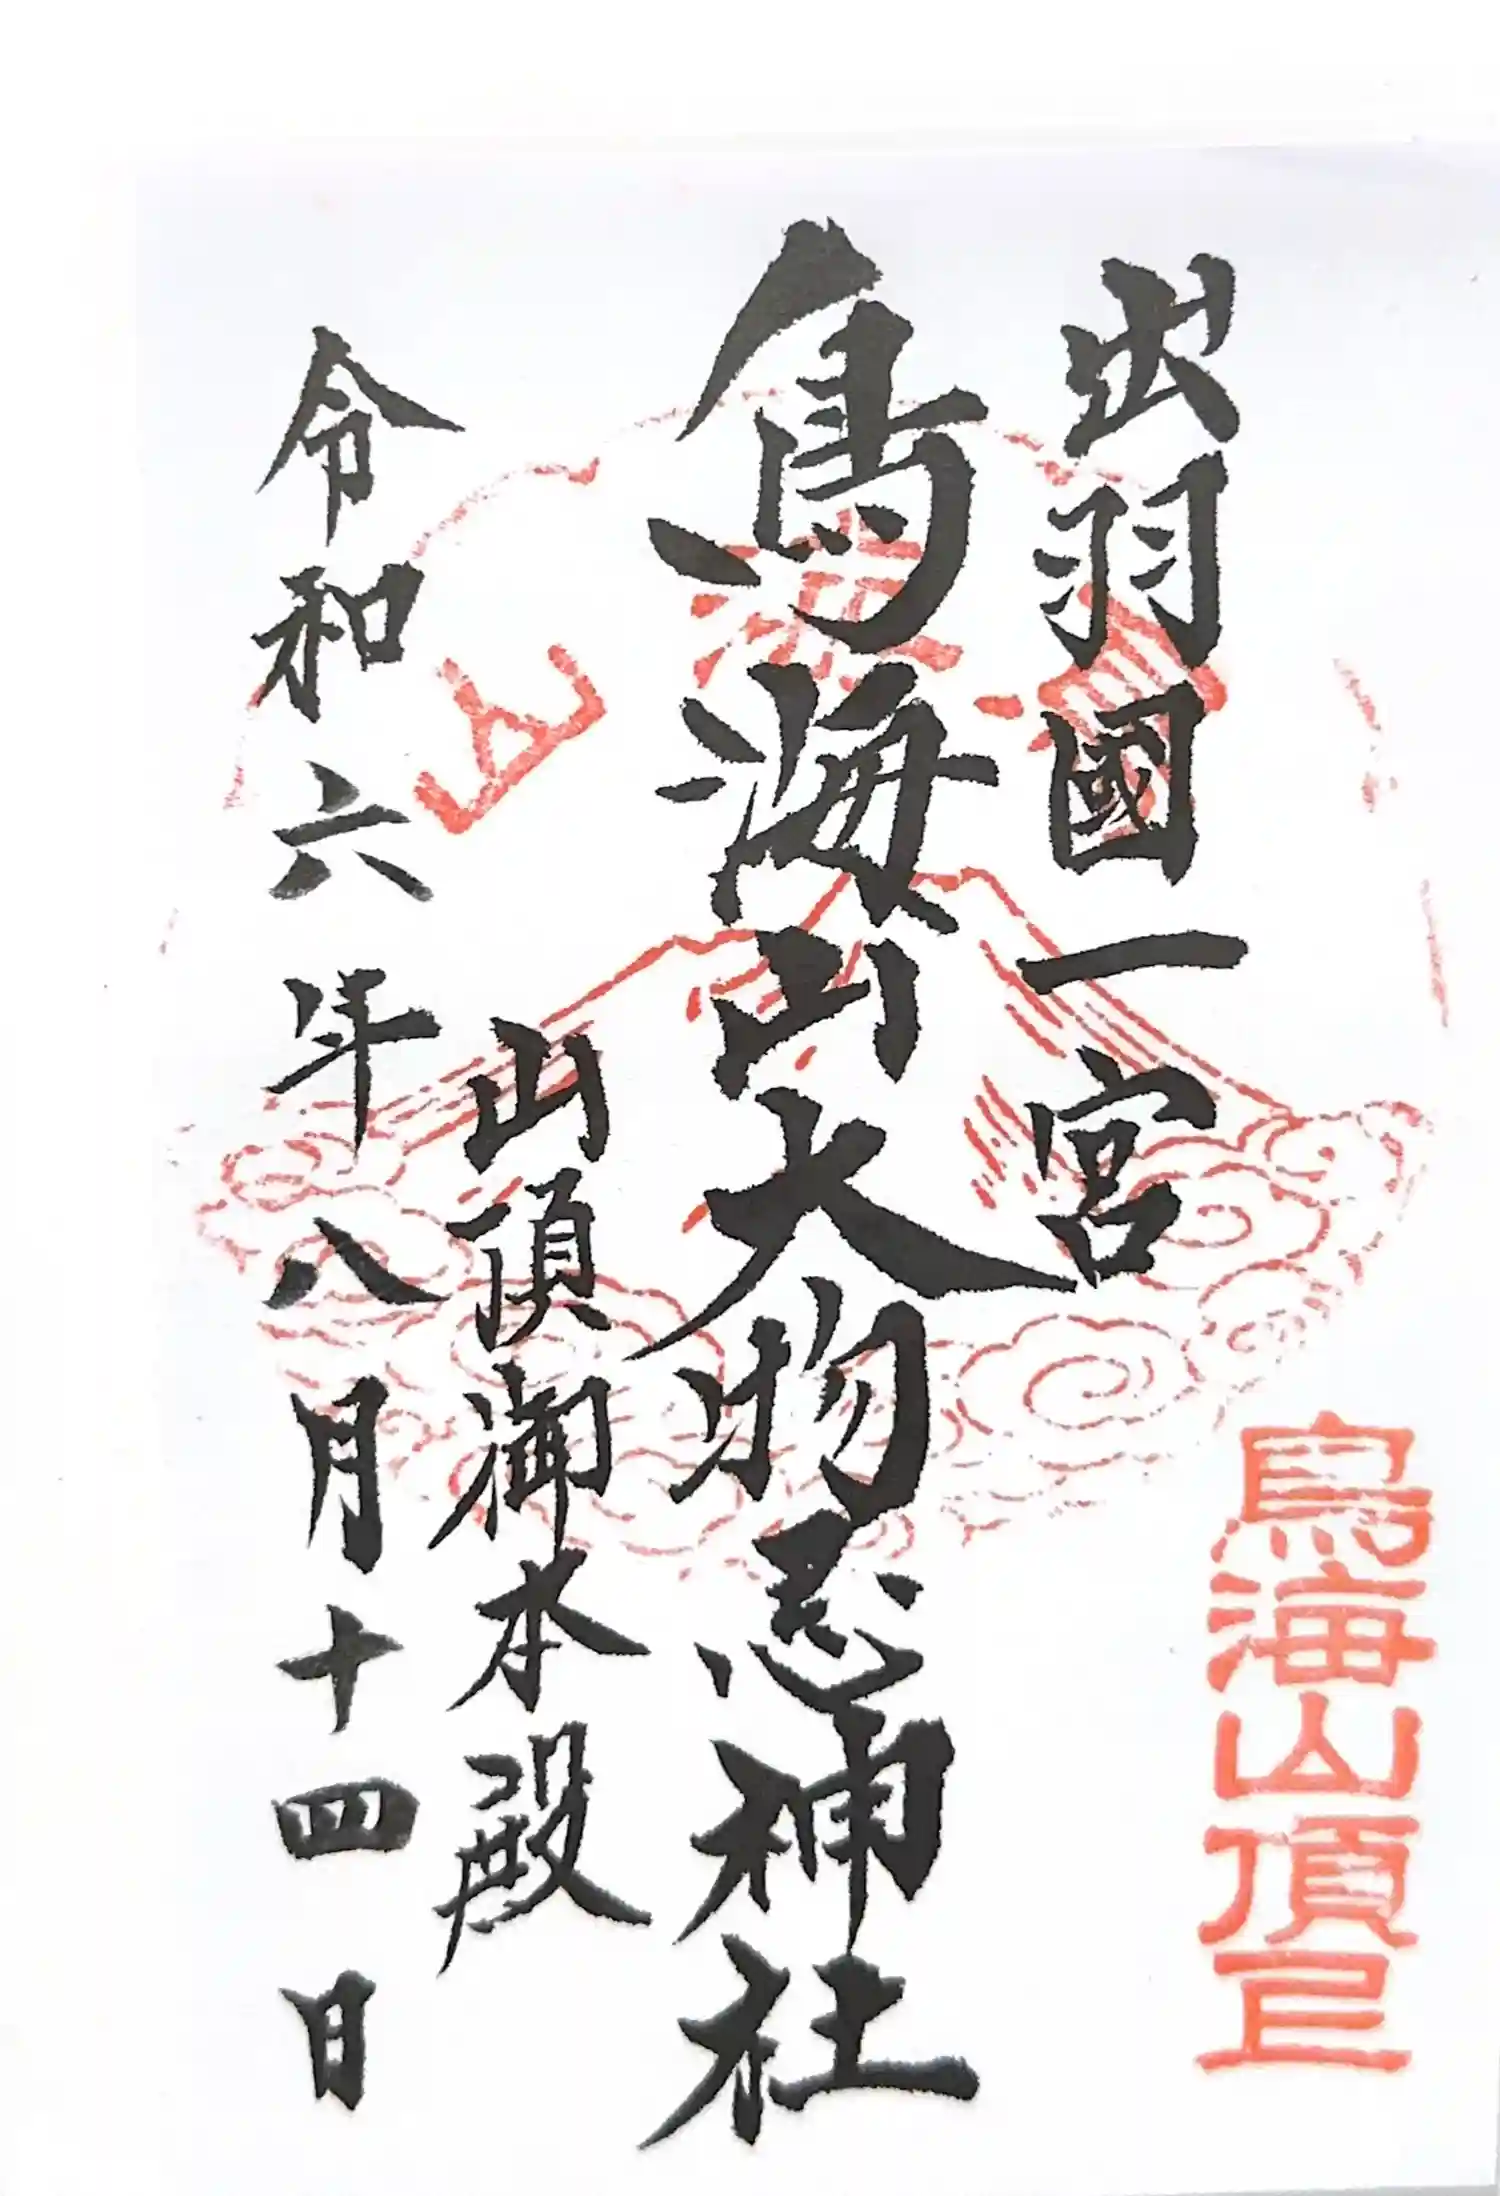 出羽國一宮
鳥海山大物忌神社
山頂御本殿
令和六年八月十四日
鳥海山
鳥海山頂上